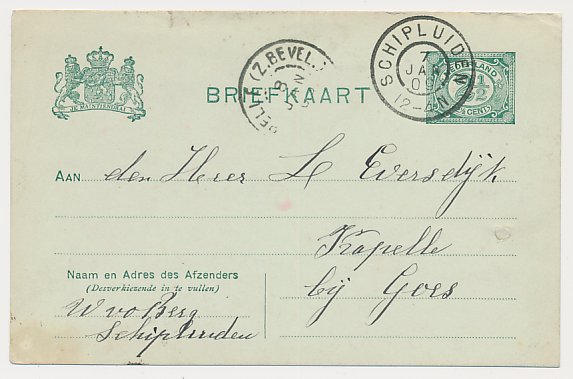 JE MAINTIENDRAI
BRIEFKAART
(Z.BEVEL.)
8 JAN
SCHIPLUIDEN
7 JAN 09
12-4N
NEDERLAND
2½
CENT
AAN den Heer L Eversdijk
Kapelle
bij Goes
Naam en Adres des Afzenders
(Desverkiezende in te vullen)
W v d Berg
Schipluiden